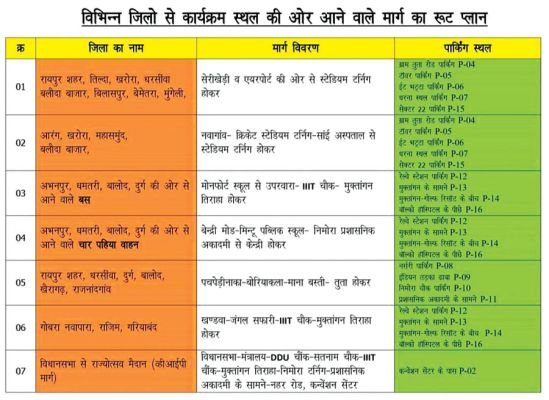 विभिन्न जिलो से कार्यक्रम स्थल की ओर आने वाले मार्ग का रूट प्लान
क्र जिला का नाम मार्ग विवरण पार्किंग स्थल
01
रायपुर शहर, तिल्दा, खरोरा, धरसींवा
बलौदा बाजार, बिलासपुर, बेमेतरा, मुंगेली,
सेरीखेड़ी व एयरपोर्ट की ओर से स्टेडियम टर्निग
होकर
ग्राम तुता रोड पार्किंग P-04
टॉवर पार्किंग P-05
ईट भट्टा पार्किंग P-06
धरना स्थल पार्किंग P-07
सेक्टर 22 पार्किंग P-15
02
आरंग, खरोरा, महासमुंद,
बलौदा बाजार,
नवागांव- क्रिकेट स्टेडियम टर्निग-सांई अस्पताल से
स्टेडियम टर्निग होकर
ग्राम तुता रोड पार्किंग P-04
टॉवर पार्किंग P-05
ईट भट्टा पार्किंग P-06
धरना स्थल पार्किंग P-07
सेक्टर 22 पार्किंग P-15
03
अभनपुर, धमतरी, बालोद, दुर्ग की ओर से
आने वाले बस
मोनफोर्ट स्कूल से उपरवारा- IIIT चौक- मुक्तांगन
तिराहा होकर
रेल्वे स्टेशन पार्किंग P-12
मुक्तांगन के सामने P-13
मुक्तांगन-गोल्फ रिसॉर्ट के बीच P-14
बॉल्को हॉस्पिटल के पीछे P-16
04
अभनपुर, धमतरी, बालोद, दुर्ग की ओर से
आने वाले चार पहिया वाहन
केन्द्री मोड-मिन्टू पब्लिक स्कूल- निमोरा प्रशासनिक
अकादमी से केन्द्री होकर
रेल्वे स्टेशन पार्किंग P-12
मुक्तांगन के सामने P-13
मुक्तांगन-गोल्फ रिसॉर्ट के बीच P-14
बॉल्को हॉस्पिटल के पीछे P-16
05
रायपुर शहर, धरसींवा, दुर्ग, बालोद,
खैरागढ़, राजनांदगांव
पचपेड़ीनाका-बोरियाकला-माना बस्ती- तुता होकर
नर्सरी पार्किंग P-08
इंडियन तड़का ढाबा P-09
निमोरा चौक पार्किंग P-10
प्रशासनिक अकादमी के सामने P-11
06
गोबरा नवापारा, राजिम, गरियाबंद
खण्डवा-जंगल सफारी-IIIT चौक-मुक्तांगन तिराहा
होकर
रेल्वे स्टेशन पार्किंग P-12
मुक्तांगन के सामने P-13
मुक्तांगन-गोल्फ रिसॉर्ट के बीच P-14
बॉल्को हॉस्पिटल के पीछे P-16
07
विधानसभा से राज्योत्सव मैदान (व्हीआईपी
मार्ग)
विधानसभा-मंत्रालय-DDU चौंक-सतनाम चौक-IIIT
चौंक-मुक्तांगन तिराहा-निमोरा टर्निग-प्रशासनिक
अकादमी के सामने-नहर रोड, कन्वेंशन सेंटर
कन्वेंशन सेंटर के पास P-02